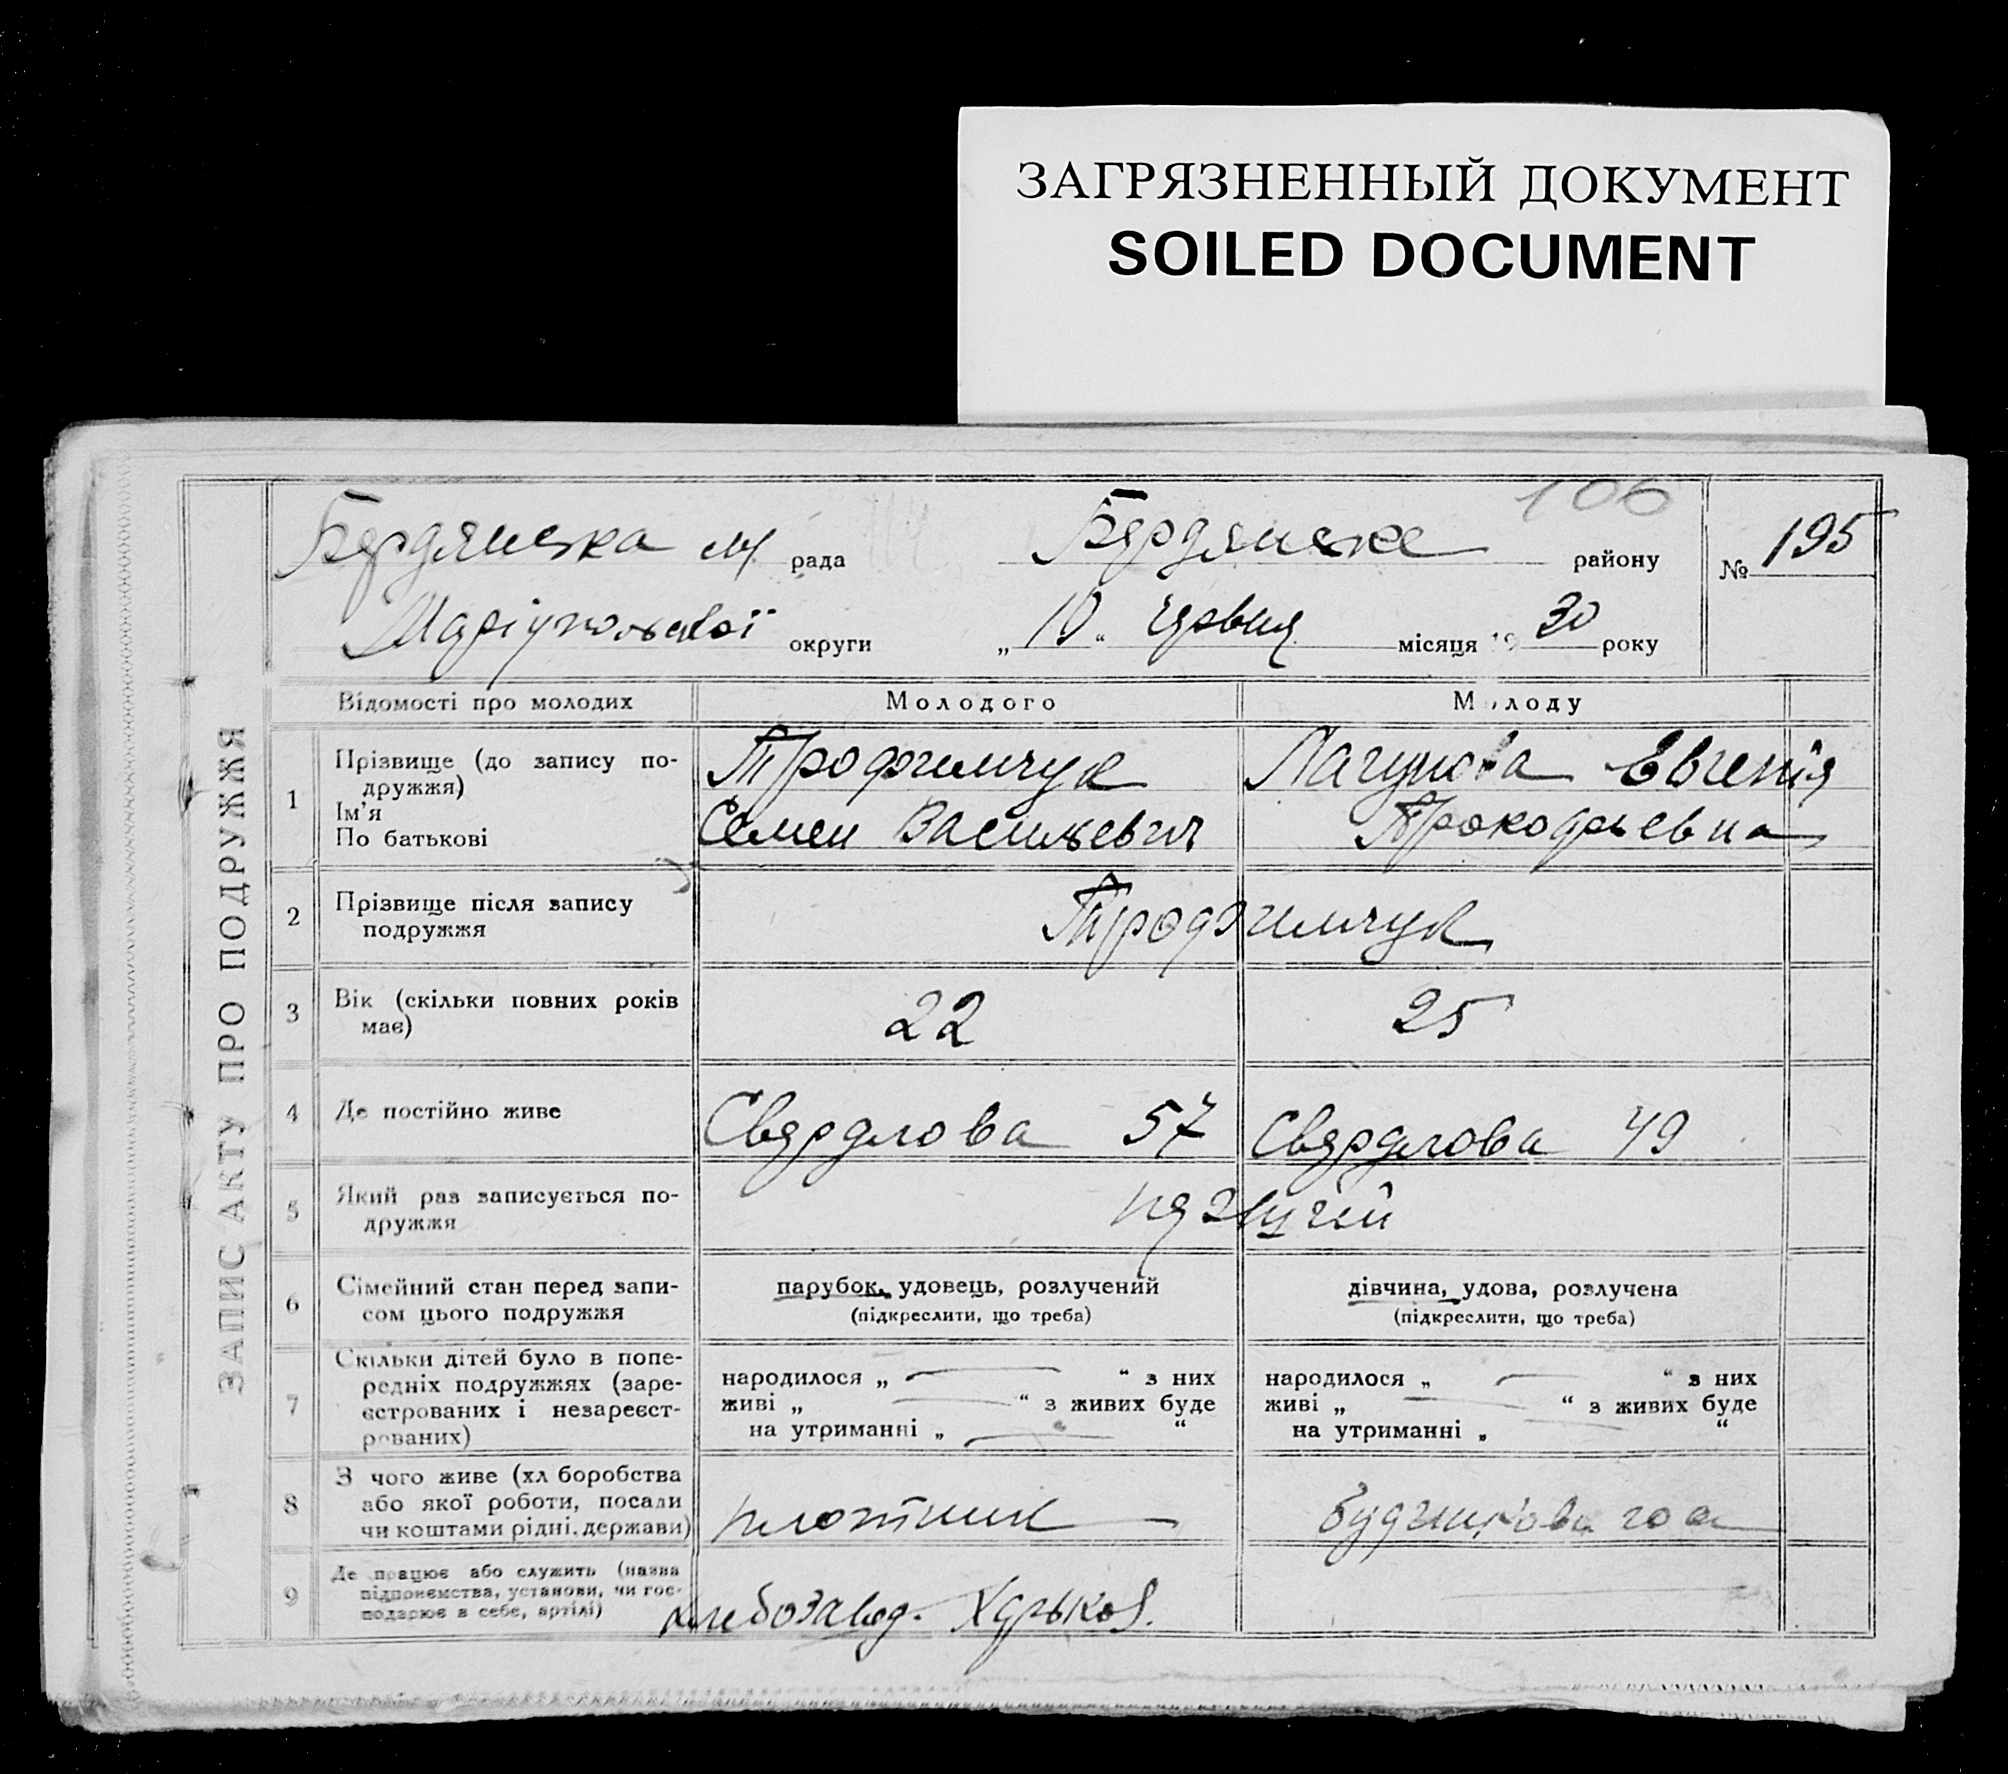 ЗАГРЯЗНЕННЫЙ ДОКУМЕНТ
SOILED DOCUMENT
106
Бердянська м. рада Бердянске району № 195
Маріупольської округи „10“ червня місяця 1930 року
ЗАПИС АКТУ ПРО ПОДРУЖЖЯ
Відомості про молодих Молодого Молоду
1 Прізвище (до запису по-
дружжя)
Ім'я
По батькові
Трофимчук
Семен Васильевич
Лагунова Евгенія
Прокофьевна
2 Прізвище після запису
подружжя
Трофимчук
3 Вік (скільки повних років
має)
22 25
4 Де постійно живе Свердлова 57 Свердлова 49
5 Який раз записується по-
дружжя
6 Сімейний стан перед запи-
сом цього подружжя
парубок, удовець, розлучений
(підкреслити, що треба)
дівчина, удова, розлучена
(підкреслити, що треба)
7 Скільки дітей було в попе-
редніх подружжях (заре-
єстрованих і незареєст-
рованих)
народилося „ “ з них
живі „ “ з живих буде
на утриманні „ “
народилося „ “ з них
живі „ “ з живих буде
на утриманні „ “
8 З чого живе (хліборобства
або якої роботи, посади
чи коштами рідні, держави)
плотник
9 Де працює або служить (назва
підприємства, установи, чи гос-
подарює в себе, артілі)
хлебозавод. Харьков.